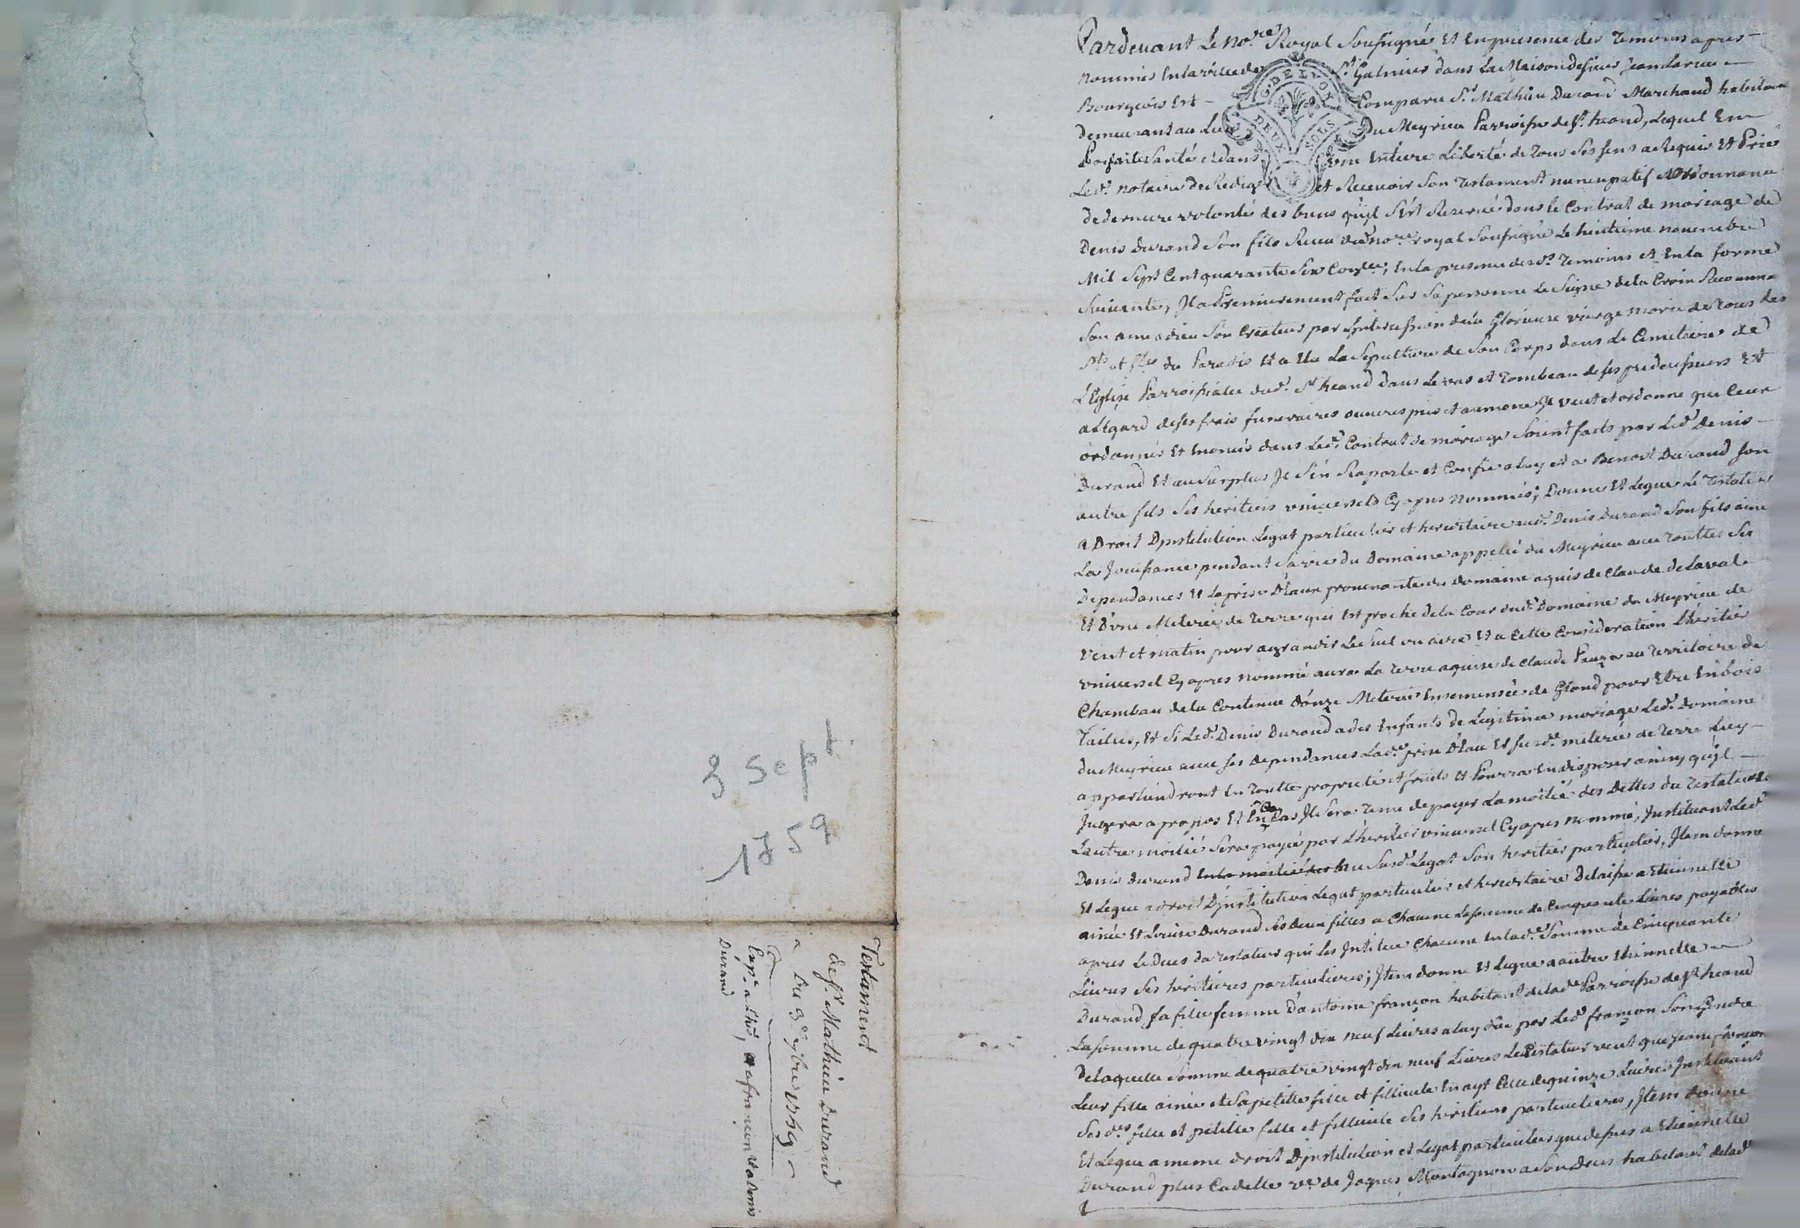 Pardevant Le no.re Royal Soussigné Et En presence des Temoins apres
nommés En la ville de St Galmier dans La Maison de sieur Jean Larue
Bourgeois Est Comparu Sr Mathieu Durand Marchand habitant
Demeurant au Lieu du Meyrieu Parroisse de St heand, Lequel En
Parfaite Santé et dans une Entiere Liberté de Tous Ses sens a Requis Et Prié
Led. notaire de Rediger et Recevoir Son Testament nuncupatif et ordonnance
de derniere volonté des biens qu'jl s'est Reservé dans le Contrat de mariage de
Denis Durand Son fils Receu dud. no.re royal Soussigné Le huitieme novembre
Mil Sept Cent quarante Six, En la presence desd. Temoins et En la forme
Suivante, Jl a Premierement fait Sur Sa personne Le Signe de la Croix Recommandé
Son ame a dieu Son Createur par L'jntercession de la Glorieuse vierge marie de Tous Les
Sts et Stes du Paradis Et a Elu La Sepulture de Son Corps dans Le Cemetiere de
L'Eglise Parroissialle dud. St heand dans Le vas et Tombeau de ses predecesseurs Et
a L'Egard de ses frais funeraires œuvres pies et aumones Jl veut et ordonne que Ceux
ordonnés Et Enoncés dans Led. Contrat de mariage Soient faits par Led. Denis
Durand Et au Surplus Jl S'en Raporte et Confie a luy et a Benoit Durand Son
autre fils Ses heritiers universels Cy apres nommés; Donne Et Legue Le Testateur
a Droit D'jnstitution Legat particulier et hereditaire aud. Denis Durand Son fils ainé
La Jouissance pendant Sa vie du Domaine appellé du Meyrieu avec Touttes Ses
Dependances Et La prise D'Eaux provenante du domaine aquis de Claude Delaval
Et D'une Meterée de Terre qui Est proche de la Cour dud. Domaine du Meyrieu de
vent et matin pour agrandir Le Suel ou aire Et a Cette Consideration L'heritier
universel Cy apres nommé aura La Terre aquise de Claude au Territoire de
Chambau de la Contenue D'onze Meterées Ensemensée de Gland pour Etre En bois
Taillis, Et Si Led. Denis Durand a des Enfants de Legitime mariage Led. Domaine
du Meyrieu avec ses Dependances Lad. prise D'Eau Et susd. meterée de Terre Luy
appartiendront En Toutte proprieté et fruits Et Pourra En disposer ainsy qu'jl
Jugera a propos Et En Ce Cas Jl Sera Tenu de payer La moitié des Dettes du Testateur
L'autre moitié Sera payée par L'heritier universel Cy apres nommé, Jnstituant Led.
Denis Durand au Susd. Legat Son heritier particulier, Jtem donne
Et Legue a droit D'jnstitution Legat particulier et hereditaire a Etiennette
ainée Et Louise Durand Ses Deux filles a Chacune La somme de Cinquante Livres payables
apres Le deces du Testateur qui les Jnstitue Chacune En lad. Somme de Cinquante
Livres Ses heritieres particulieres; Jtem donne Et Legue a autre Etiennette
Durand sa fille femme D'antoine françon habitant de lad. Parroisse de St heand
La somme de quatre vingt dix neuf Livres a luy due par Led. françon Son Gendre
De laquelle Somme de quatre vingt dix neuf Livres Le Testateur veut que Jeanne françon
Leur fille ainée et Sa petitte fille et fillieule En ayt Celle de quinze Livres Jnstituant
Ses d.es fille et petitte fille et fillieule Ses heritieres particulieres, Jtem donne
Et Legue a meme droit D'jnstitution et Legat particulier que dessus a Etiennette
Durand plus Cadette ve de Jaques Montagnon a Son deces habitant de lad.
G. DE LYON
DEUX SOLS
3 Sept
1759
Testament
de Sr Mathieu Durand
Du 3e 7bre 1759
Durand